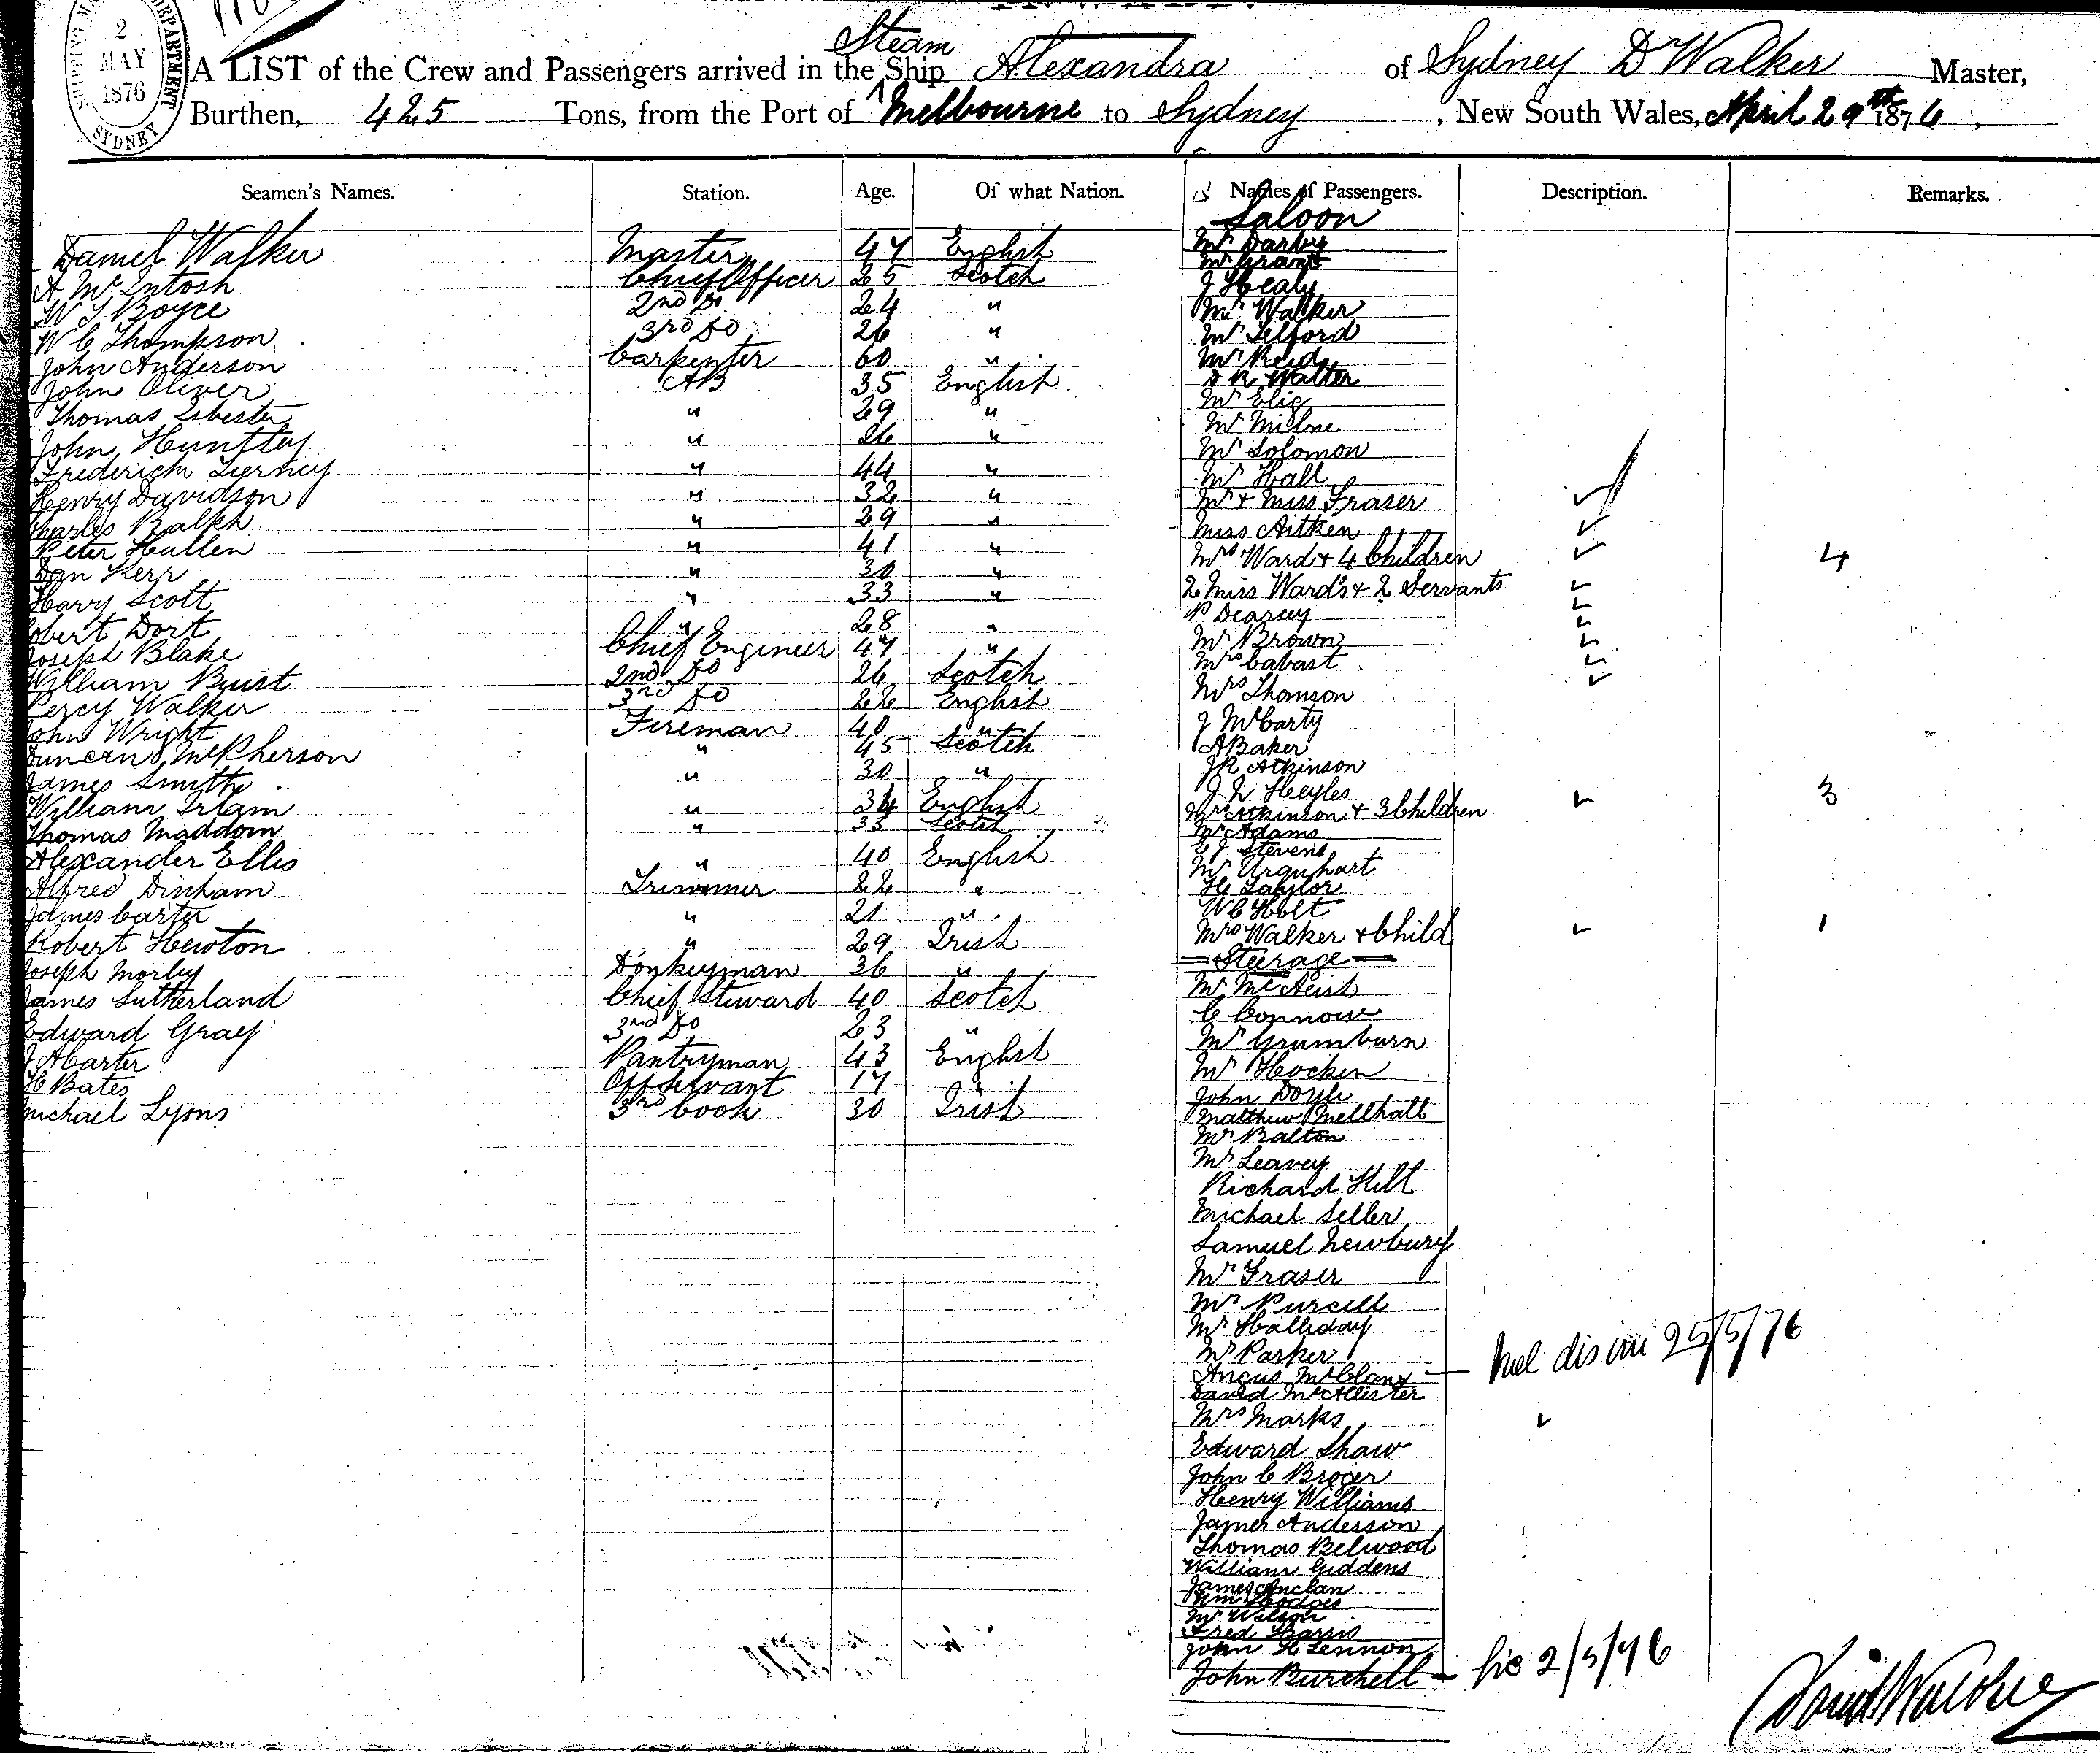 SHIPPING MA DEPARTMENT
2
MAY
1876
SYDNEY
A LIST of the Crew and Passengers arrived in the Steam Ship Alexandra of Sydney D Walker Master,
Burthen, 425 Tons, from the Port of Melbourne to Sydney, New South Wales, April 29th 1876,
Seamen's Names. Station. Age. Of what Nation. Names of Passengers. Description. Remarks.
Saloon
Daniel Walker Master 47 English Mr Darby
A McIntosh Chief Officer 25 Scotch Mr Grant
W J Boyce 2nd Do 24 " J Healy
W C Thompson 3rd Do 26 " Mr Walker
John Anderson Carpenter 60 " Mr Telford
John Oliver AB 35 English Mr Reid
Thomas Isbester " 29 " D R Walter
John Huntley " 26 " Mr Elig
Frederick Tierney " 44 " Mr Milne
Henry Davidson " 32 " Mr Solomon
Charles Balkh " 29 " Mr Hall
Peter Hullen " 41 " Mr + Miss Fraser
Dan Kerr " 30 " Miss Aitken
Harry Scott " 33 " Mrs Ward + 4 Children 4
Robert Dort " 28 " 2 Miss Wards + 2 Servants
Joseph Blake Chief Engineer 47 " P Dearcy
William Buist 2nd Do 26 Scotch Mr Brown
Percy Walker 3rd Do 22 English Mrs Cabast
John Wright Fireman 40 " Mrs Thomson
Duncan McPherson " 45 Scotch J McCarty
James Smith " 30 " A Baker
William Irlam " 34 English J R Atkinson
Thomas Maddom " 33 Scotch J N Heyles
Alexander Ellis " 40 English Mrs Atkinson + 3 Children 3
Alfred Dinham Trimmer 22 " Mr Adams
James Carter " 21 " E J Stevens
Robert Hewton " 29 Irish Mr Urquhart
Joseph Morley Donkeyman 36 " H Taylor
James Sutherland Chief Steward 40 Scotch W C Holt
Edward Gray 3nd Do 23 " Mrs Walker + Child 1
J A Carter Pantryman 43 English
H Bates Off Servant 17 "
Michael Lyons 3rd Cook 30 Irish
Steerage
Mr McAeish
C Connow
Mr Grumburn
Mr Hocken
John Doyle
Matthew Mellhall
Mr Balton
Mr Leavey
Richard Hill
Michael Seller
Samuel Newbury
Mr Fraser
Mr Purcell
Mr Halliday
Mr Parker
Angus McClany 25/5/76
David McAllister
Mrs Marks
Edward Shaw
John C Broger
Henry Williams
James Anderson
Thomas Belwood
William Giddens
James
Wm Hodges
Mr Wilson
Fred Harris
John H Lennon
John Burchell 2/5/76